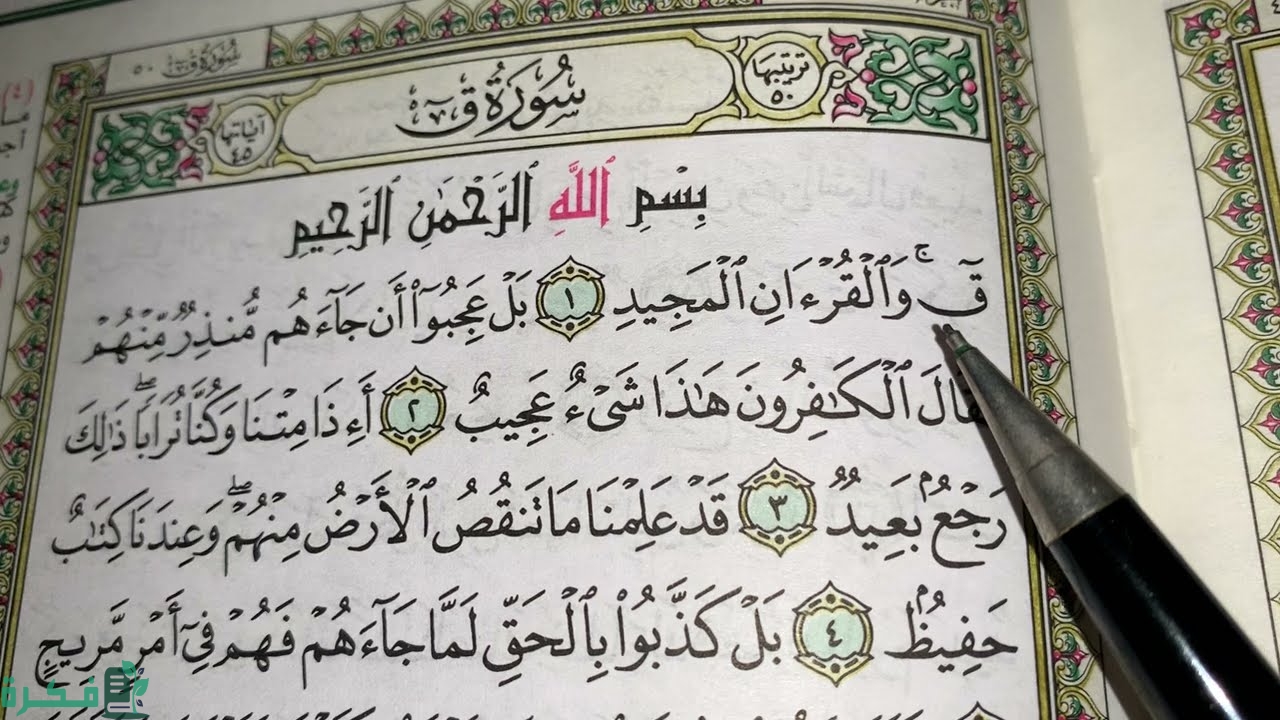 سُورَةُ قٓ ٥٠
تَرتيبُهَا ٥٠
سُورَةُ قٓ
آيَاتُهَا ٤٥
بِسْمِ ٱللَّهِ ٱلرَّحْمَٰنِ ٱلرَّحِيمِ
قٓ ۚ وَٱلْقُرْءَانِ ٱلْمَجِيدِ ١ بَلْ عَجِبُوٓا۟ أَن جَآءَهُم مُّنذِرٌ مِّنْهُمْ
فَقَالَ ٱلْكَـٰفِرُونَ هَـٰذَا شَىْءٌ عَجِيبٌ ٢ أَءِذَا مِتْنَا وَكُنَّا تُرَابًا ۖ ذَٰلِكَ
رَجْعٌۢ بَعِيدٌ ٣ قَدْ عَلِمْنَا مَا تَنقُصُ ٱلْأَرْضُ مِنْهُمْ ۖ وَعِندَنَا كِتَـٰبٌ
حَفِيظٌۢ ٤ بَلْ كَذَّبُوا۟ بِٱلْحَقِّ لَمَّا جَآءَهُمْ فَهُمْ فِىٓ أَمْرٍ مَّرِيجٍ
فكرة